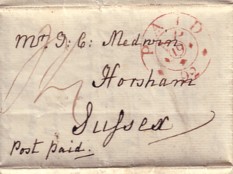 PAID
Mr. D: C: Medwin
Horsham
Sussex
Post Paid.